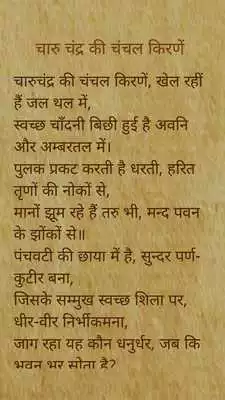 चारु चंद्र की चंचल किरणें
चारुचंद्र की चंचल किरणें, खेल रहीं
हैं जल थल में,
स्वच्छ चाँदनी बिछी हुई है अवनि
और अम्बरतल में।
पुलक प्रकट करती है धरती, हरित
तृणों की नोकों से,
मानों झूम रहे हैं तरु भी, मन्द पवन
के झोंकों से॥
पंचवटी की छाया में है, सुन्दर पर्ण-
कुटीर बना,
जिसके सम्मुख स्वच्छ शिला पर,
धीर-वीर निर्भीकमना,
जाग रहा यह कौन धनुर्धर, जब कि
भुवन भर सोता है?